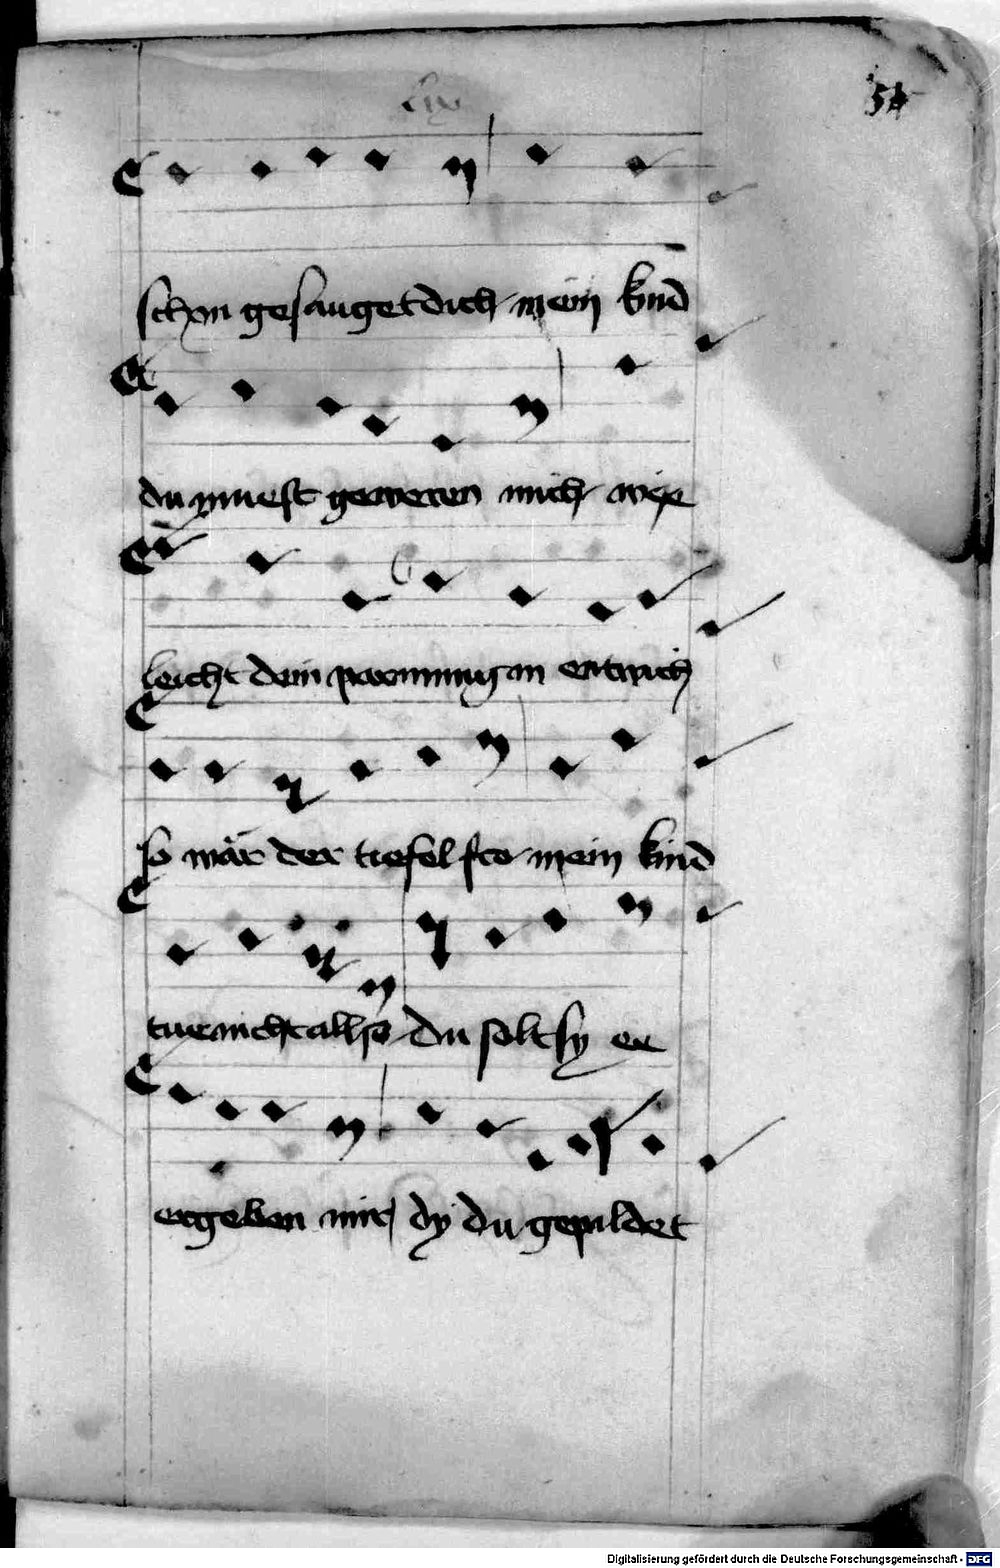 54
schon gesauget dich mein kind
du muest geweren mich
leicht dein in entwich
so wär der tiefel fro mein kind
tue nicht allso du solt sy er
ergeben mir dy du gepildet
Digitalisierung gefördert durch die Deutsche Forschungsgemeinschaft - DFG